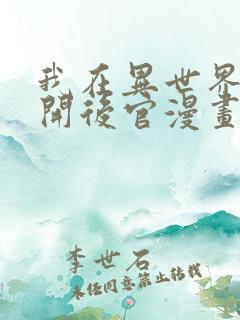 我在異世界
開後宮漫畫
李世石
未經同意禁止轉載